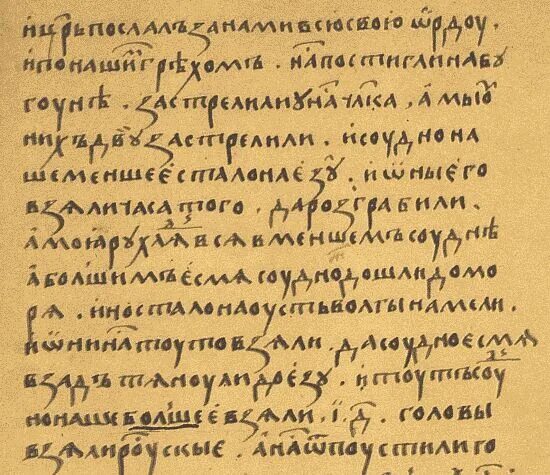 и цр҃ь послалъ за нами всю свою ѡрдоу .
и по наши грѣхомъ . на постигли на бу
гоунѣ . застрелили у на чл҃ка , а мы ѹ
нихъ двꙋ застрелили . и соудно на
ше меншеє стало на єзꙋ . и ѡны єго
взяли часа того . да розграбили .
а моя рухля вся в меншемъ соуднѣ
а болшимъ єсмя соудно дошли до мо
ря . ино стало на оусть волгы на мели .
и ѡни на тоуто взяли . да соудно єсмя
взадъ тяноули до єзу . и тоутъ соу
но наше болшеє взяли . і҃. д҃ . головы
взяли роускые . а на ѿпоустили го